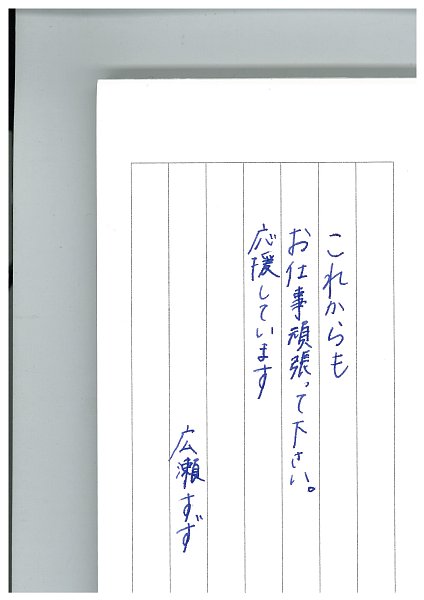 これからも
お仕事頑張って下さい。
応援しています
広瀬すず